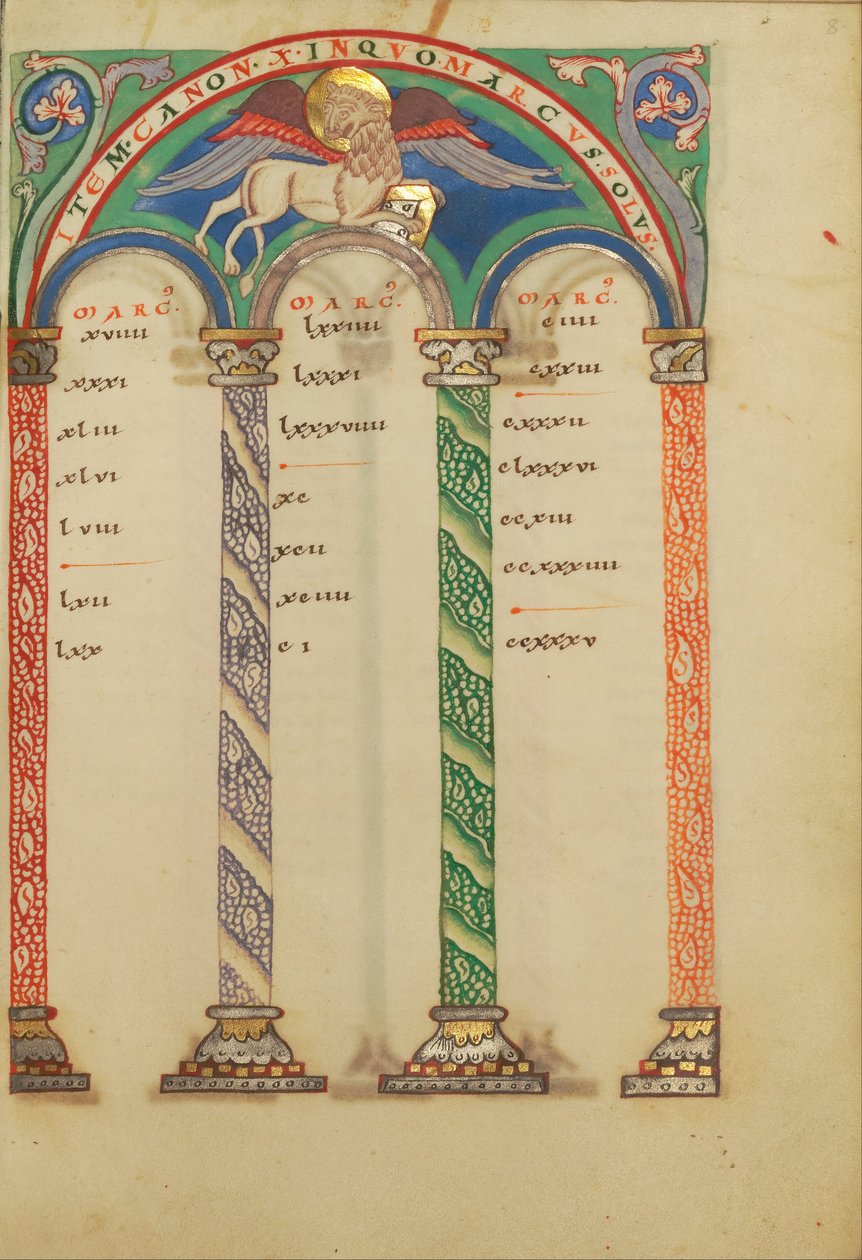 8
ITEM·CANON·X·INQVO·MARCVS·SOLVS·
MARCꝰ.
xviiii
xxxi
xliii
xlvi
lviii
lxii
lxx
MARCꝰ.
lxxiiii
lxxxi
lxxxviiii
xc
xcii
xciiii
ci
MARCꝰ.
ciiii
cxxiii
cxxxii
clxxxvi
ccxiii
ccxxxiiii
ccxxxv